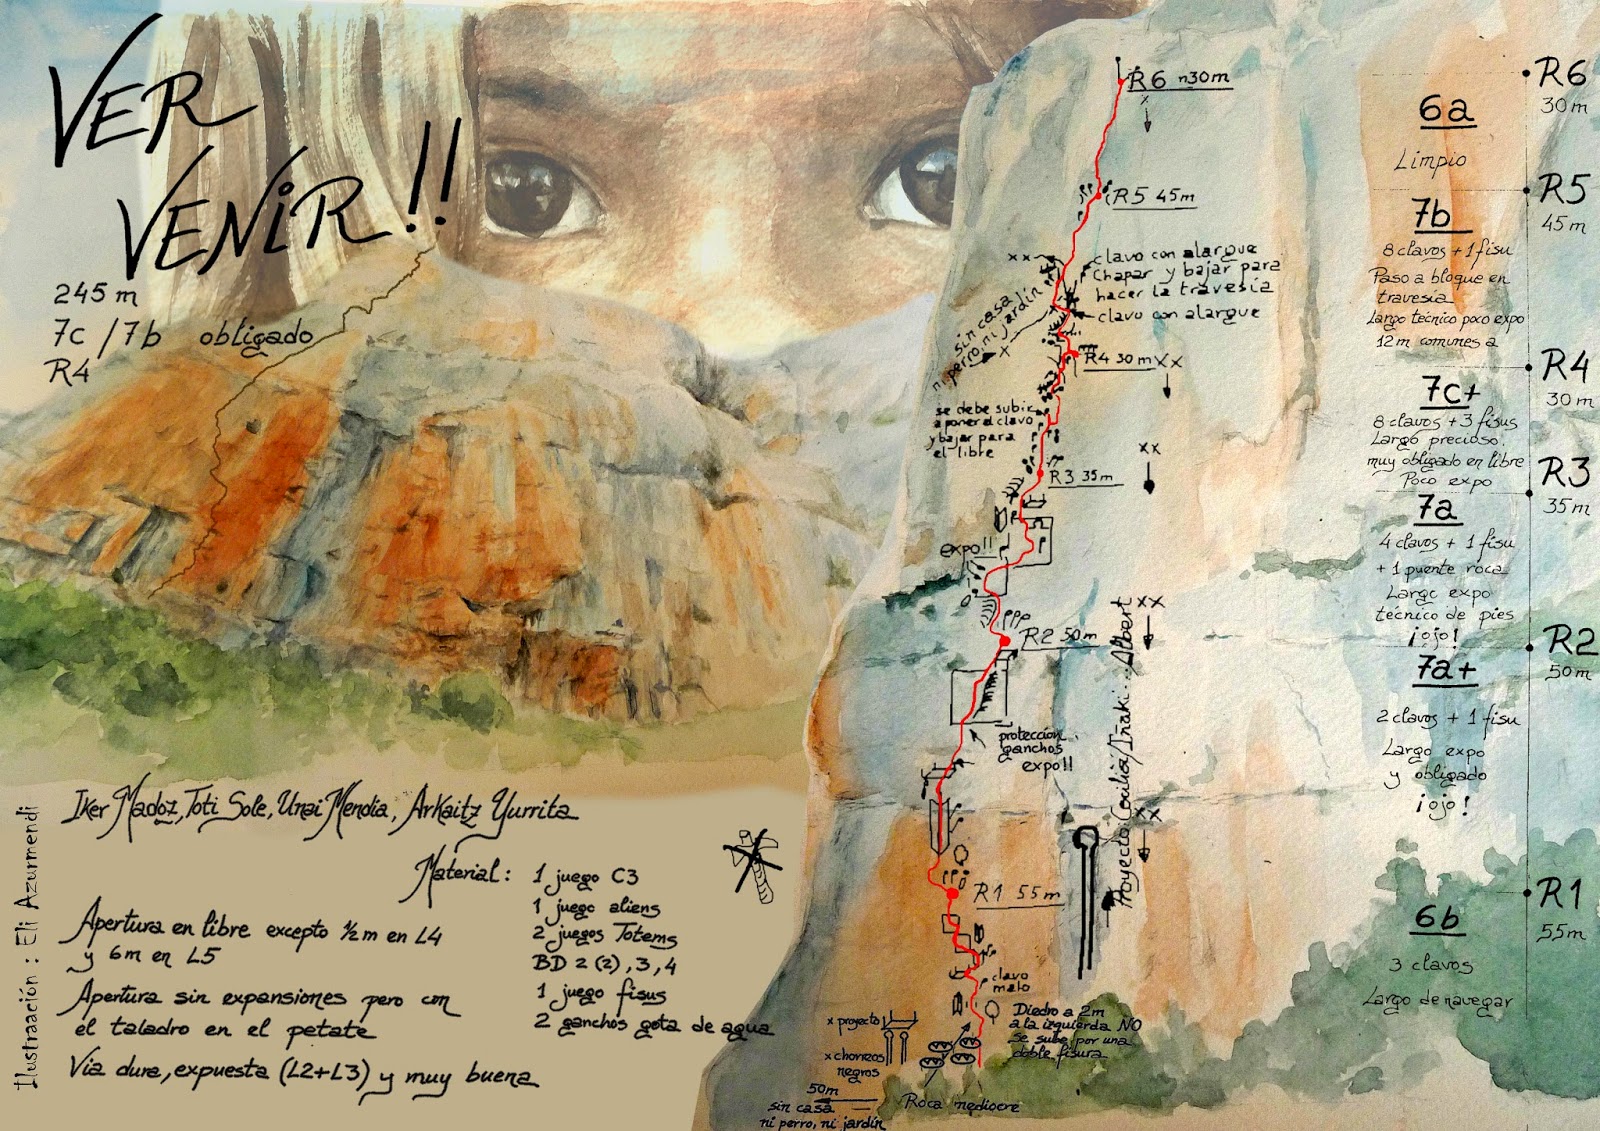 VER
VENIR!!
245 m
7c / 7b obligado
R4
Iker Madoz, Toti Sole, Unai Mendia, Arkaitz Yurrita
Material:
1 juego C3
1 juego aliens
2 juegos Totems
BD 2 (2), 3, 4
1 juego fisus
2 ganchos gota de agua
Apertura en libre excepto ½ m en L4
y 6m en L5
Apertura sin expansiones pero con
el taladro en el petate
Vía dura, expuesta (L2+L3) y muy buena
Ilustraación : Eli Azurmendi
R6 30m
x
R5 45m
xx
clavo con alargue
chapar y bajar para
hacer la travesía
clavo con alargue
sin casa
ni perro, ni jardín
x
R4 30m
xx
se debe subir
a poner el clavo
y bajar para
el libre
xx
R3 35m
expo!!
xx
R2 50m
protección
ganchos
expo!!
Proyecto Cecilia/Iñaki... Albert
xx
R1 55m
clavo
malo
Diedro a 2m
a la izquierda NO
Se sube por una
doble fisura
x proyecto
x chorizos
negros
50m
sin casa
ni perro, ni jardín
Roca mediocre
R6
30 m
6a
Limpio
R5
45 m
7b
8 clavos + 1 fisu
Paso a bloque en
travesía
Largo técnico poco expo
12 m comunes a
R4
30 m
7c+
8 clavos + 3 fisus
Largo precioso.
muy obligado en libre
Poco expo
R3
35 m
7a
4 clavos + 1 fisu
+ 1 puente roca
Largo expo
técnico de pies
¡ojo!
R2
50 m
7a+
2 clavos + 1 fisu
Largo expo
y obligado
¡ojo!
R1
55 m
6b
3 clavos
Largo de navegar